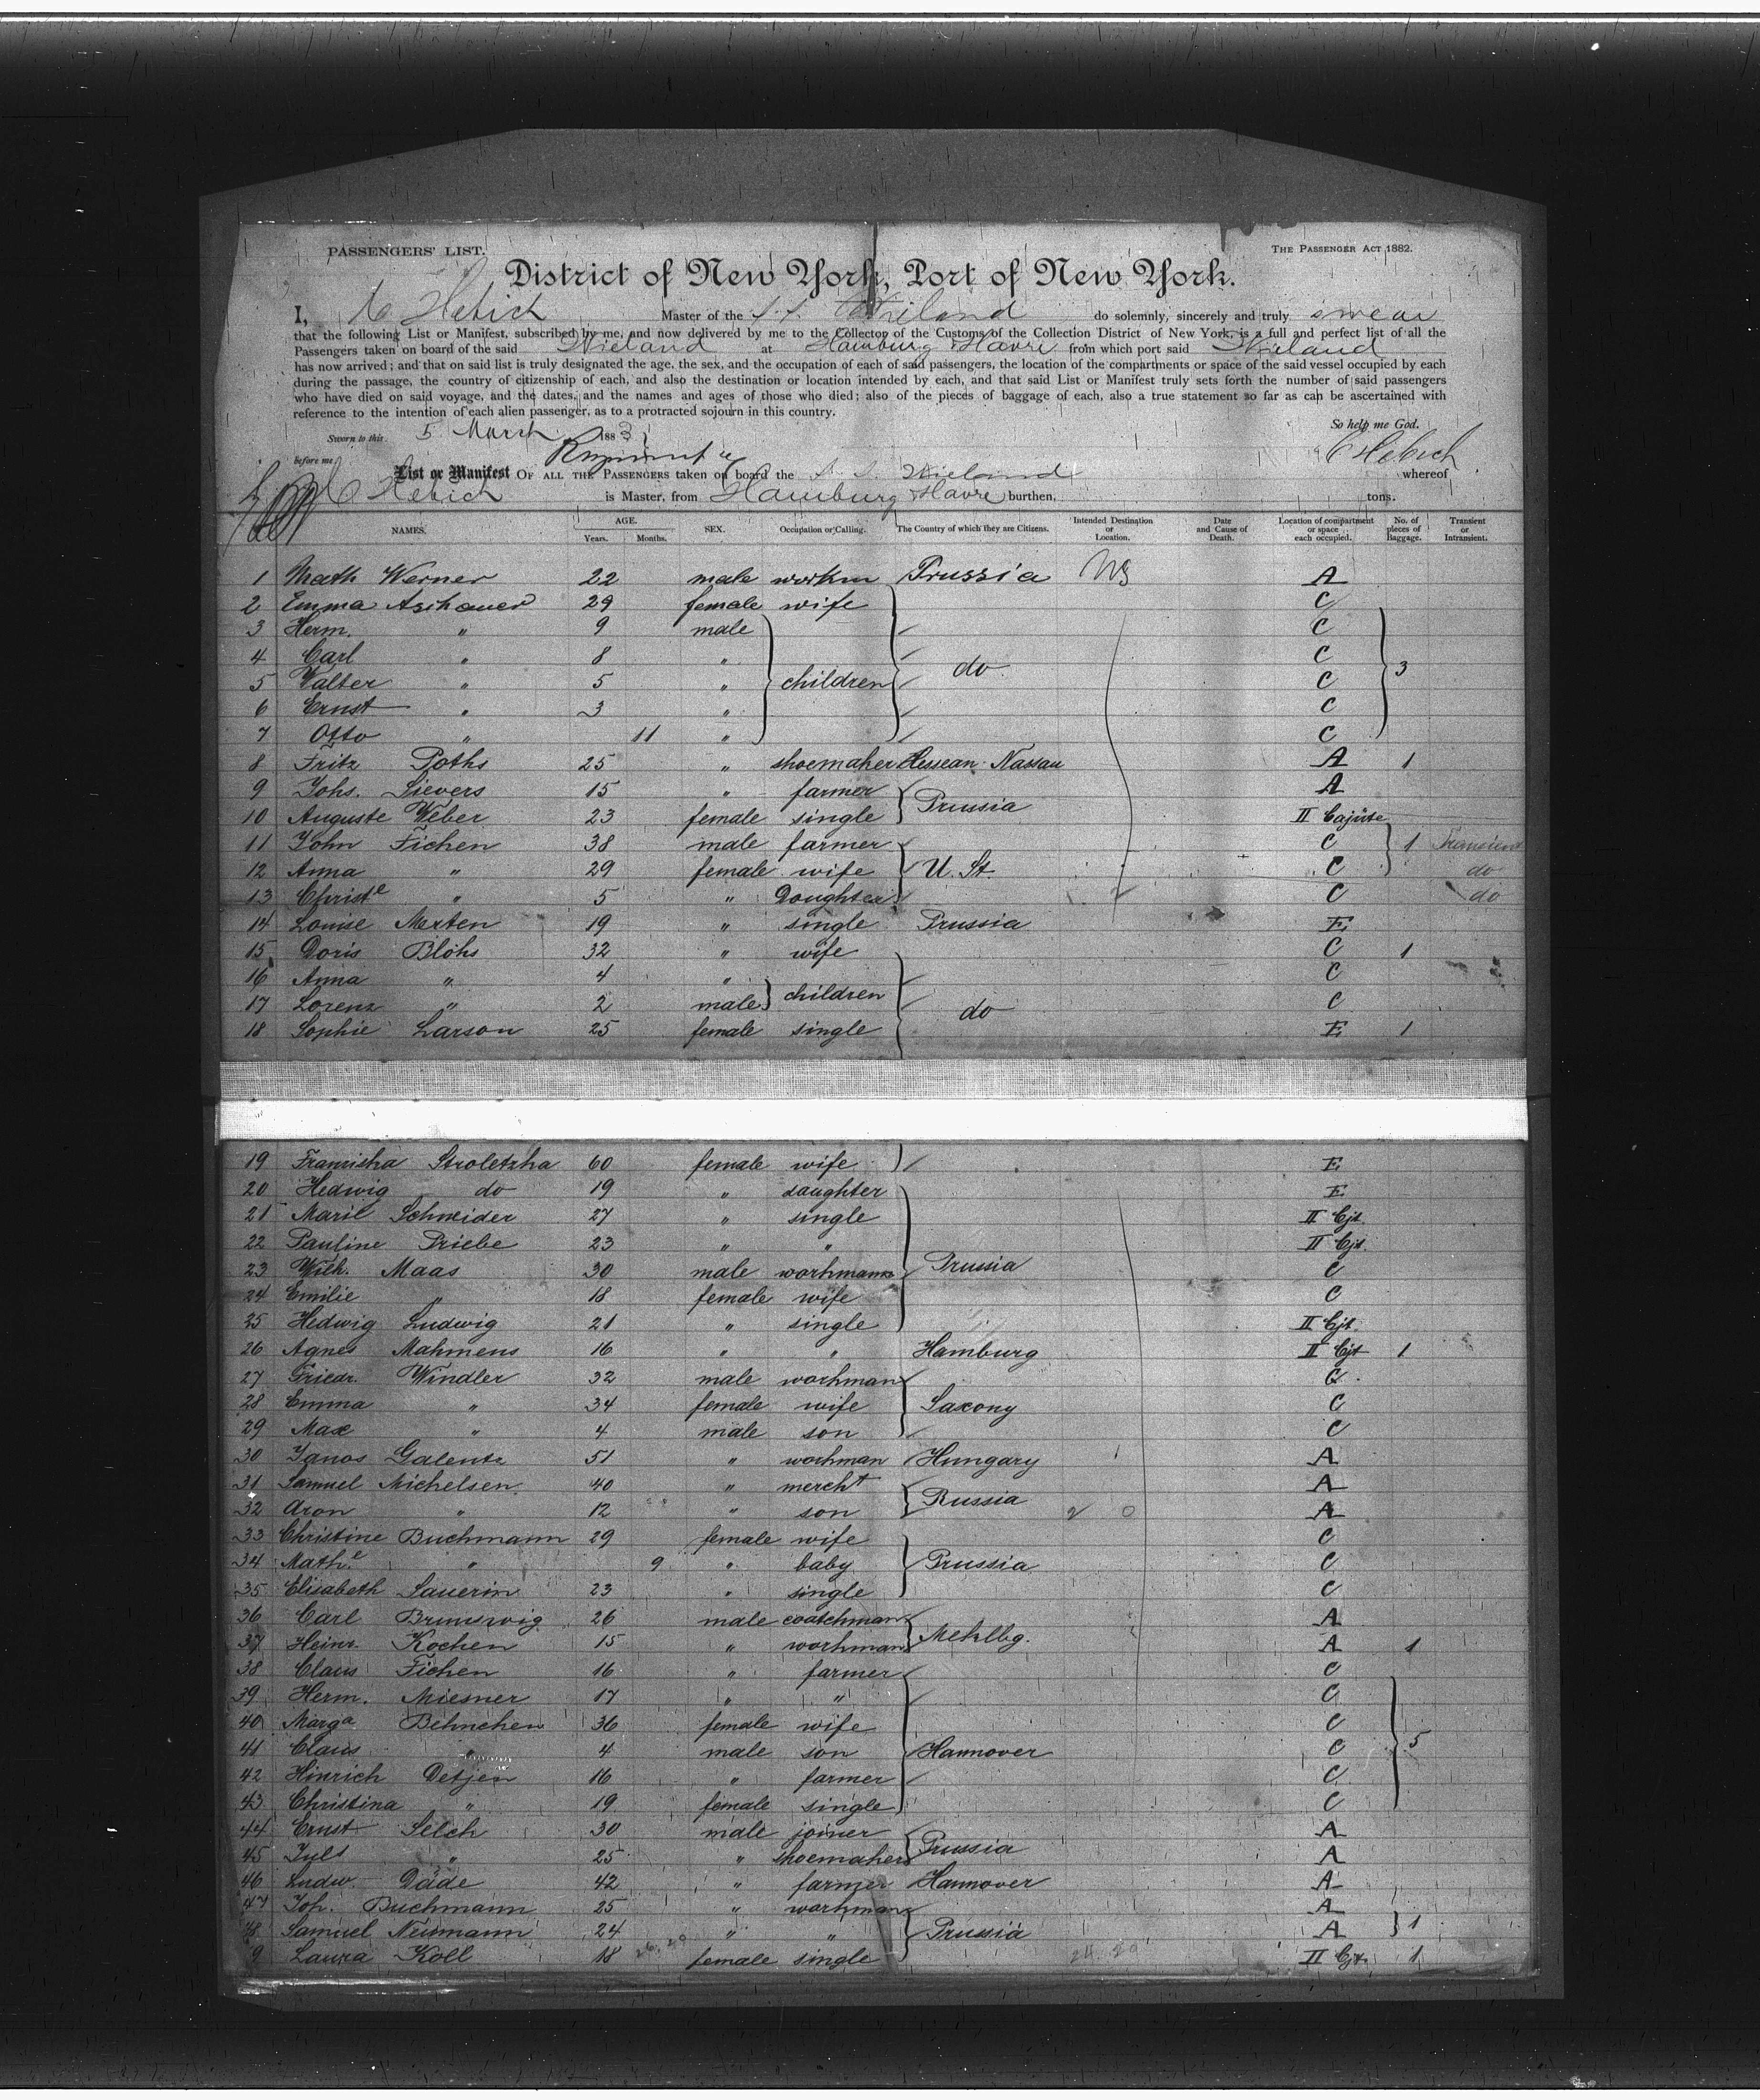 PASSENGERS' LIST. THE PASSENGER ACT 1882.
District of New York, Port of New York.
I, C Hebich Master of the S. S. Wieland do solemnly, sincerely and truly swear
that the following List or Manifest, subscribed by me, and now delivered by me to the Collector of the Customs of the Collection District of New York, is a full and perfect list of all the
Passengers taken on board of the said Wieland at Hamburg Havre from which port said Wieland
has now arrived; and that on said list is truly designated the age, the sex, and the occupation of each of said passengers, the location of the compartments or space of the said vessel occupied by each
during the passage, the country of citizenship of each, and also the destination or location intended by each, and that said List or Manifest truly sets forth the number of said passengers
who have died on said voyage, and the dates, and the names and ages of those who died; also of the pieces of baggage of each, also a true statement so far as can be ascertained with
reference to the intention of each alien passenger, as to a protracted sojourn in this country.
So help me God.
Sworn to this 5 March 1883
before me C Hebich
List or Manifest OF ALL THE PASSENGERS taken on board the S. S. Wieland whereof
C Hebich is Master, from Hamburg Havre burthen, tons.
NAMES. AGE. Years. Months. SEX. Occupation or Calling. The Country of which they are Citizens. Intended Destination or Location. Date and Cause of Death. Location of compartment or space each occupied. No. of pieces of Baggage. Transient or Intransient.
1 Math Werner 22 male workm Prussia A
2 Emma Aschauer 29 female wife C
3 Herm. " 9 male C
4 Carl " 8 " do C 3
5 Walter " 5 " children C
6 Ernst " 3 " C
7 Otto " 11 " C
8 Fritz Poths 25 " shoemaker Hessean-Nassau A 1
9 Johs. Sievers 15 " farmer A
10 Auguste Weber 23 female single Prussia II Cajüte
11 John Fichen 38 male farmer C 1 Transient
12 Anna " 29 female wife U. St. C do
13 Christe " 5 " Doughter C do
14 Louise Merten 19 " single Prussia E
15 Doris Blohs 32 " wife C 1
16 Anna " 4 " C
17 Lorenz " 2 male children do C
18 Sophie Larson 25 female single E 1
19 Franziska Stroletzka 60 female wife E
20 Hedwig do 19 " daughter E
21 Marie Schneider 27 " single II Cjt.
22 Pauline Priebe 23 " " II Cjt.
23 Wilh. Maas 30 male workmann Prussia C
24 Emilie " 18 female wife C
25 Hedwig Ludwig 21 " single II Cjt.
26 Agnes Mahmens 16 " " Hamburg II Cjt 1
27 Friedr. Windler 32 male workman C
28 Emma " 34 female wife Saxony C
29 Max " 4 male son C
30 Janos Galentz 51 " workman Hungary A
31 Samuel Michelsen 40 " mercht A
32 Aron " 12 " son Russia A
33 Christine Buchmann 29 female wife C
34 Mathe " 9 " baby Prussia C
35 Elisabeth Sauerin 23 " single C
36 Carl Brunswig 26 male coatchman A
37 Heinr. Kochen 15 " workman Meklbg. A 1
38 Claus Fichen 16 " farmer C
39 Herm. Miesner 17 " " C
40 Marga Behnchen 36 female wife C
41 Claus " 4 male son Hannover C 5
42 Hinrich Detjen 16 " farmer C
43 Christina " 19 female single C
44 Ernst Selch 30 male joiner A
45 Juls " 25 " shoemaker Prussia A
46 Ludw. Däde 42 " farmer Hannover A
47 Joh. Buchmann 25 " workman A
48 Samuel Neumann 24 " " Prussia A 1
9 Laura Koll 18 female single II Cjt. 1